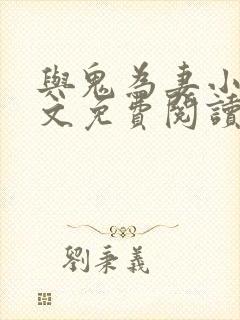 與鬼為妻小
文免費閱讀
劉秉義